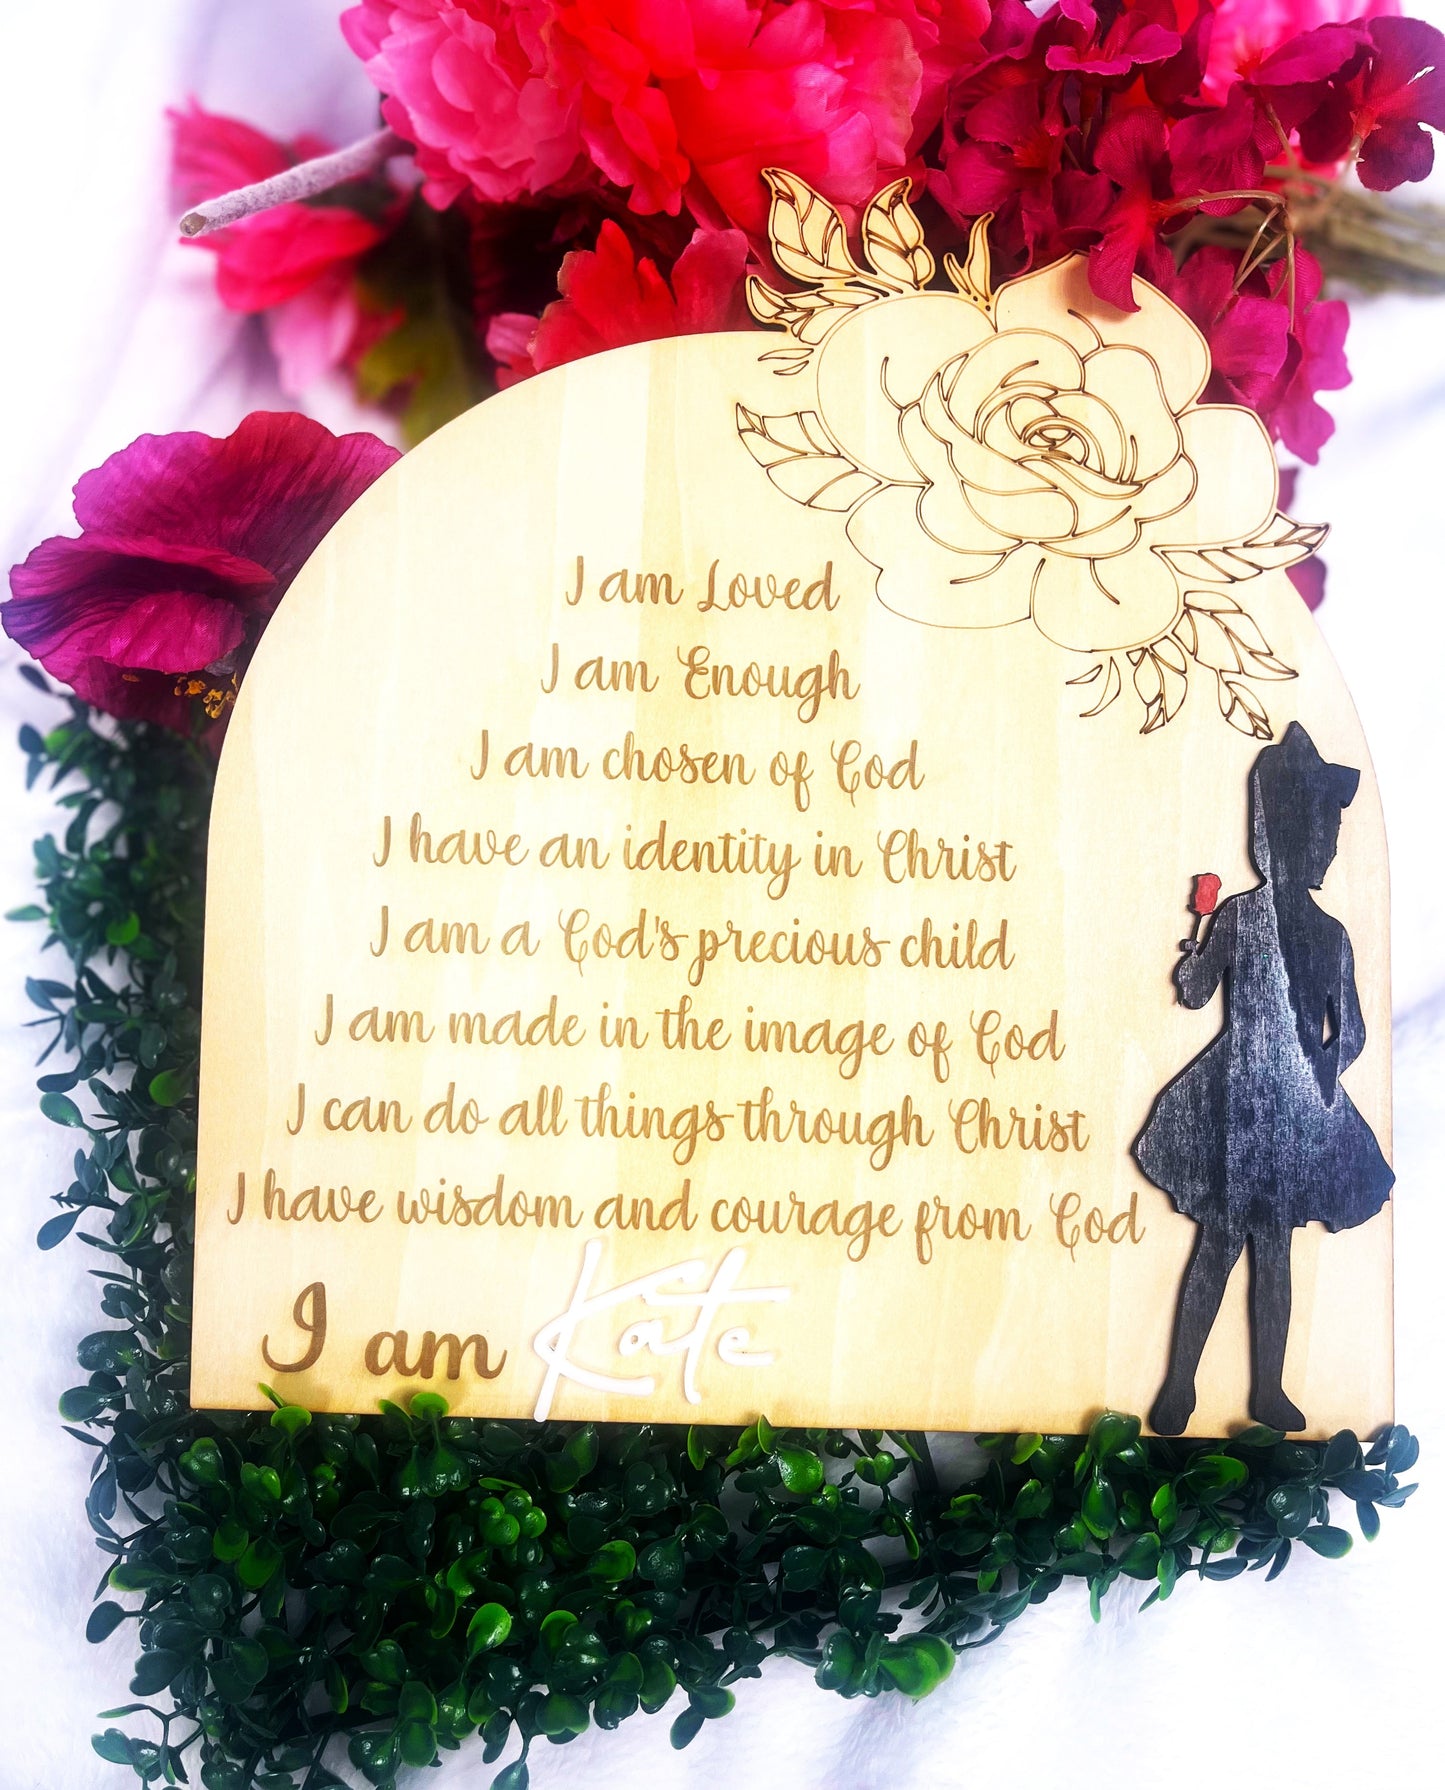 I am Loved
I am Enough
I am chosen of God
I have an identity in Christ
I am a God's precious child
I am made in the image of God
I can do all things through Christ
I have wisdom and courage from God
I am Kate